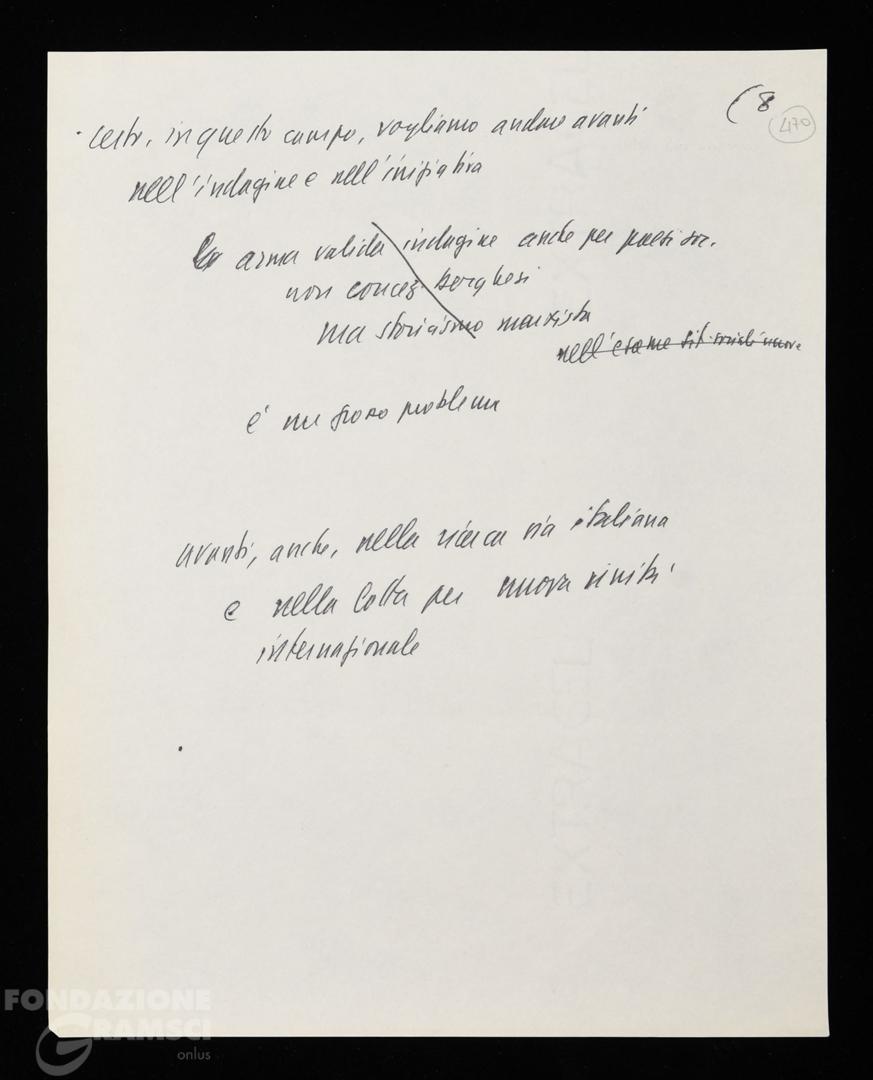 (8
470
· certo, in questo campo, vogliamo andare avanti
nell'indagine e nell'iniziativa
arma valida indagine anche per paesi soc.
non concez. borghesi
ma storicismo marxista
nell'esame sit. sociali nuove
è un grosso problema
avanti, anche, nella ricerca via italiana
e nella lotta per nuova unità
internazionale
EXTRA
FONDAZIONE
GRAMSCI
onlus